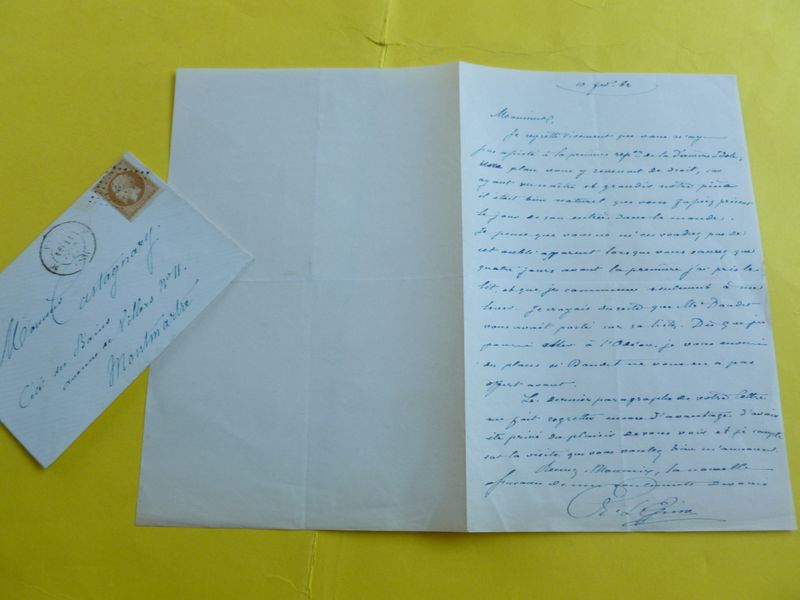 Monsieur Castagnary.
Cité des Bains
avenue de Villiers No 11.
Montmartre
10 62
Monsieur,
Je regrette vivement que vous n'ayez
pas assisté à la première repon de la Dernière Idole,
une place vous y revenait de droit, car
ayant vu naître et grandir notre pièce
il était bien naturel que vous fussiez présent
le jour de son entrée dans le monde.
Je pense que vous ne m'en voudrez pas de
cet oubli apparent lorsque vous saurez que
quatre jours avant la première j'ai pris le
lit, et que je commence seulement à me
lever. Je croyais du reste que Mr Daudet
vous avait porté sur sa liste. Dès que je
pourrai aller à l'Odéon, je vous enverrai
des places si Daudet ne vous en a pas
offert avant.
Le dernier paragraphe de votre lettre
me fait regretter encore d'avantage d'avoir
été privé du plaisir de vous voir et je compte
sur la visite que vous voulez bien m'annoncer.
Recevez Monsieur, la nouvelle
assurance de mes sentiments dévoués